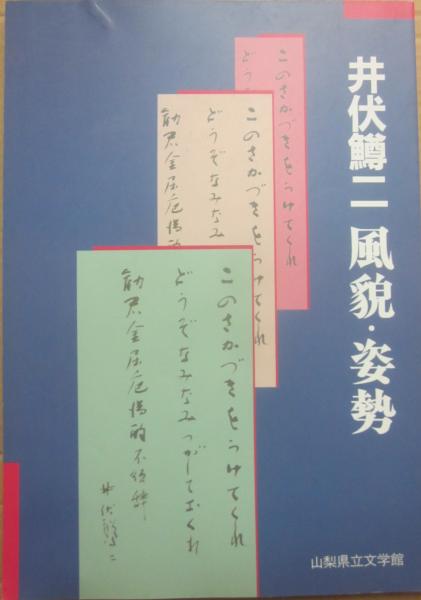 井伏鱒二 風貌・姿勢
このさかづきをうけてくれ
どう
このさかづきをうけてくれ
どうぞなみなみ
勧君金屈卮満酌
このさかづきをうけてくれ
どうぞなみなみつがしておくれ
勧君金屈卮満酌不須辞
井伏鱒二
山梨県立文学館